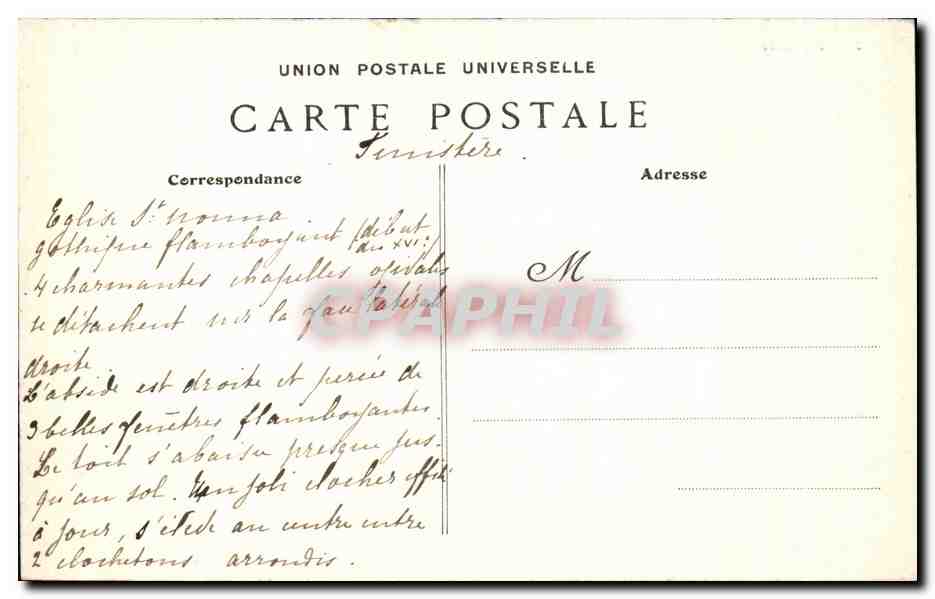 UNION POSTALE UNIVERSELLE
CARTE POSTALE
Finistère.
Correspondance
Adresse
Eglise St. Nonna.
gothique flamboyant (début
du XVIe)
4 charmantes chapelles ogivales
se détachent sur la face latérale
droite.
L'abside est droite et percée de
3 belles fenêtres flamboyantes.
Le toit s'abaisse presque jus-
qu'au sol. Un joli clocher effilé
à jour, s'élève au centre entre
2 clochetons arrondis.
M
CPAPHIL